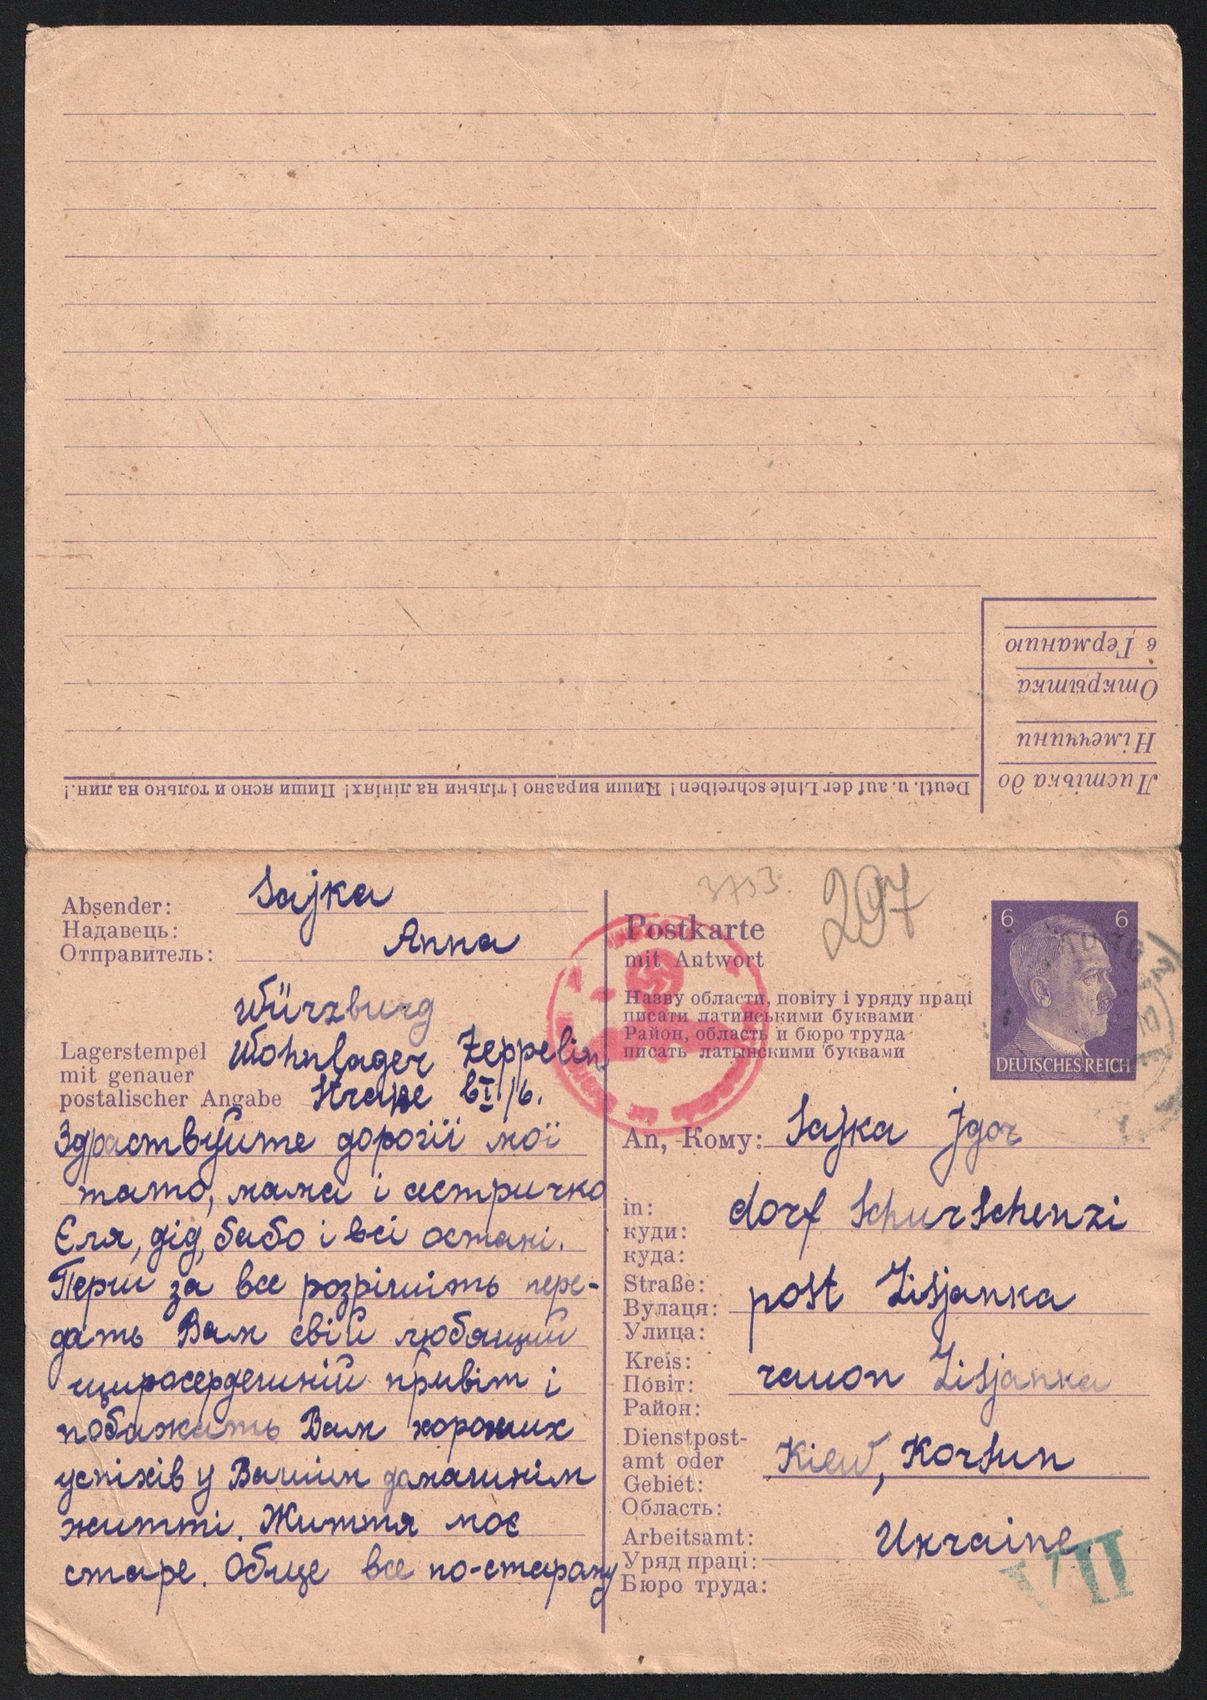 Листівка до
Німеччини
Открытка
в Германию
Deutl. u. auf der Linie schreiben! Пиши виразно і тільки на лініях! Пиши ясно и только на лин.!
Absender:
Надавець:
Отправитель:
Sajka
Anna
Würzburg
Lagerstempel
mit genauer
postalischer Angabe
Wohnlager Zeppelin
Straße bI/6.
Здраствуйте дорогії мої
тато, мама і сестричко
Єля, дід, бабо і всі остані.
Перш за все розрішіть пере-
дать Вам свій любящий
щиросердешній привіт і
побажать Вам хороших
успіхів у Вашім домашнім
житті. Життя моє
старе. Обще все по-старому
3753.
297
Postkarte
mit Antwort
Назву области, повіту і уряду праці
писати латинськими буквами
Район, область и бюро труда
писать латынскими буквами
6 6
DEUTSCHES REICH
An, Кому: Sajka Jgor
in:
куди:
куда:
dorf Schurschenzi
Straße:
Вулаця:
Улица:
post Lisjanka
Kreis:
Повіт:
Район:
raион Lisjanka
Dienstpost-
amt oder
Gebiet:
Область:
Kiew, Korsun
Arbeitsamt:
Уряд праці:
Бюро труда:
Ukraine.
VII